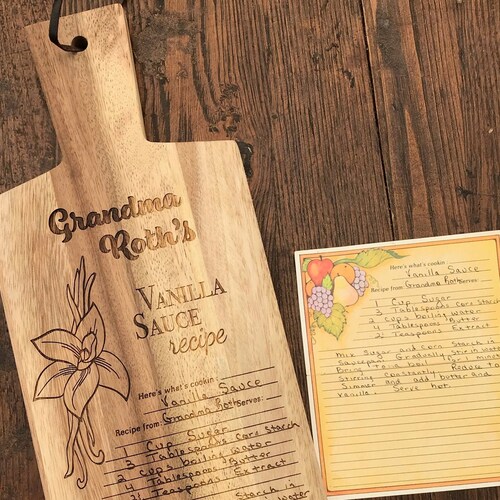 Grandma
Roth's
VANILLA
SAUCE
recipe
Here's what's cookin Vanilla Sauce
Recipe from: Grandma Roth Serves:
1 Cup Sugar
3 Tablespoons Corn Starch
2 cups boiling water
4 Tablespoons Butter
2 Teaspoons Extract
Starch in
water
Here's what's cookin Vanilla Sauce
Recipe from: Grandma Roth Serves:
1 Cup Sugar
3 Tablespoons Corn Starch
2 cups boiling water
4 Tablespoons Butter
2 Teaspoons Extract
Mix Sugar and Corn Starch in
Saucepan Gradually Stir in water
Bring to a boil, boil 1 minute
Stirring Constantly. Reduce to
Simmer and add butter and
Vanilla. Serve hot